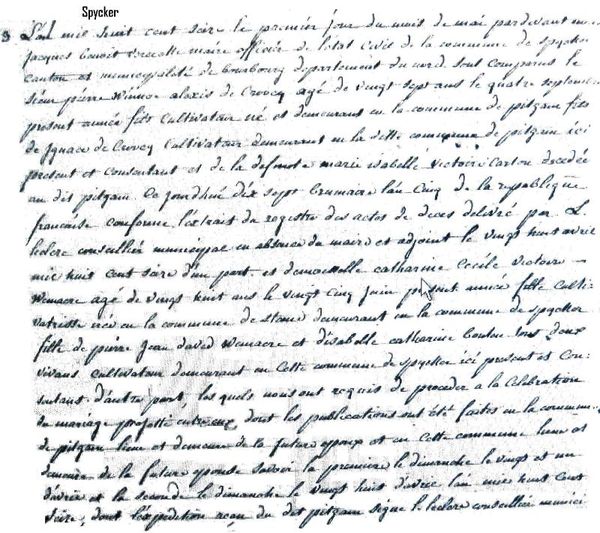 Spycker
8 L'an mil huit cent seize le premier jour du mois de mai pardevant nous
Jacques Benoit maire officier de l'état civil de la commune de spycker
canton et municipalité de bourbourg departement du nord sont comparus le
sieur pierre Winnoc alexis de Crocq agé de vingt sept ans le quatre septembre
presente année fils Cultivateur né et demeurant en la commune de pitgam fils
de Ignace de Crocq Cultivateur demeurant en la ditte commune de pitgam ici
present et Consentant et de la defunte marie isabelle Victoire Carton decedée
au dit pitgam Ce jourdhui dix sept brumaire l'an Cinq de la republique
française conforme l'extrait du registre des actes de deces delivré par L.
leclerc conseillier municipal en absence du maire et adjoint le vingt huit avril
mil huit cent seize d'un part et demoiselle catharine Cecile Victoire
Wemaere agé de vingt huit ans le vingt Cinq Juin present année fille Culti-
vatrisse née en la commune de demeurant en la commune de spycker
fille de pierre Jean david Wemaere et d'isabelle catharine tous deux
vivans cultivateur demeurant en Cette commune de spycker ici present et Con-
sentant d'autre part, les quels nous ont requis de proceder a la Celebration
du mariage projetté entre eux, dont les publications ont été faites en la commune
de pitgam lieu et demeure de la future epoux et en Cette commune lieu et
demeure de la future epouse savoir la premiere le dimanche le vingt et un
d'avril et la seconde le dimanche le vingt huit d'avril l'an mil huit Cent
Seize, dont l'expedition du dit pitgam signé L. leclerc conseillier munici